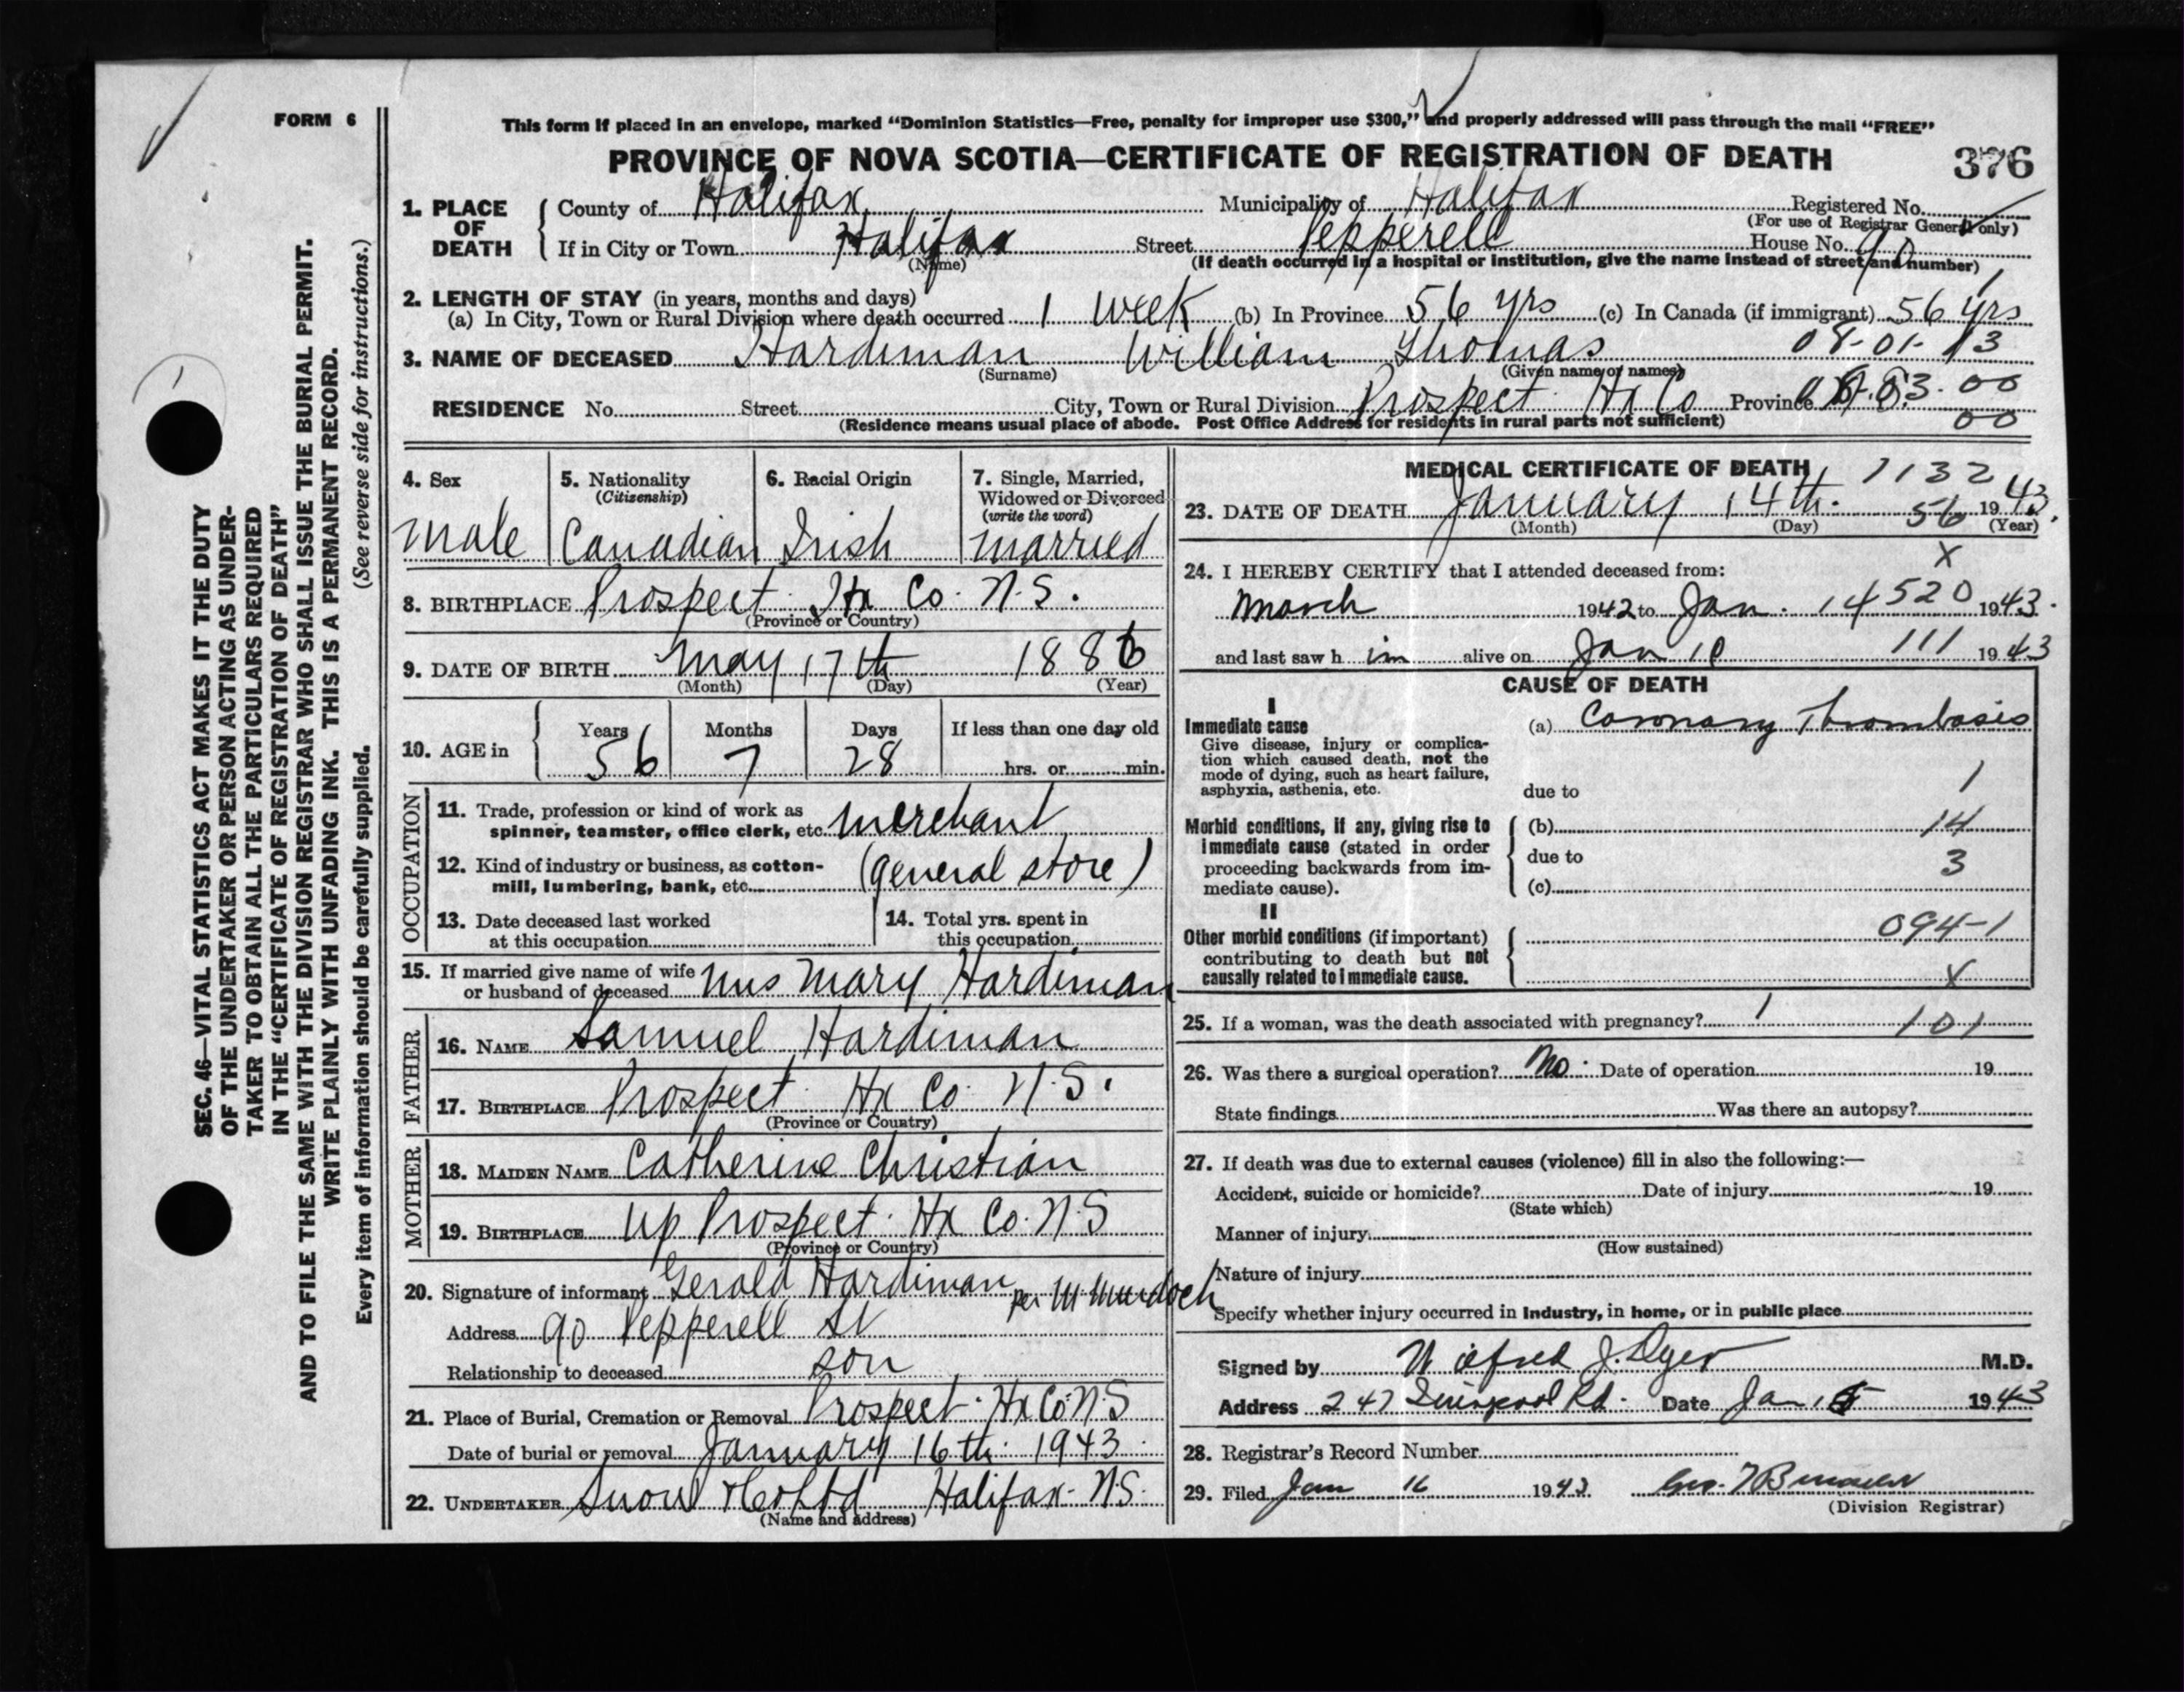 FORM 6
This form if placed in an envelope, marked “Dominion Statistics—Free, penalty for improper use $300,” and properly addressed will pass through the mail “FREE”
PROVINCE OF NOVA SCOTIA—CERTIFICATE OF REGISTRATION OF DEATH
376
1. PLACE OF DEATH
County of Halifax Municipality of Halifax Registered No.
(For use of Registrar General only)
If in City or Town Halifax Street Pepperell House No. 90
(Name) (If death occurred in a hospital or institution, give the name instead of street and number)
2. LENGTH OF STAY (in years, months and days)
(a) In City, Town or Rural Division where death occurred 1 week (b) In Province 56 yrs (c) In Canada (if immigrant) 56 yrs
3. NAME OF DECEASED Hardiman William Thomas 08-01-13
(Surname) (Given name or names)
RESIDENCE No. Street City, Town or Rural Division Prospect Hx Co Province
(Residence means usual place of abode. Post Office Address for residents in rural parts not sufficient) 00
4. Sex
male
5. Nationality
(Citizenship)
Canadian
6. Racial Origin
Irish
7. Single, Married,
Widowed or Divorced
(write the word)
married
8. BIRTHPLACE Prospect Hx Co. N.S.
(Province or Country)
9. DATE OF BIRTH May 17th 1886
(Month) (Day) (Year)
10. AGE in
Years Months Days If less than one day old
56 7 28 hrs. or min.
OCCUPATION
11. Trade, profession or kind of work as
spinner, teamster, office clerk, etc. merchant
12. Kind of industry or business, as cotton-
mill, lumbering, bank, etc. (general store)
13. Date deceased last worked
at this occupation
14. Total yrs. spent in
this occupation
15. If married give name of wife
or husband of deceased Mrs Mary Hardiman
FATHER
16. NAME Samuel Hardiman
17. BIRTHPLACE Prospect Hx Co N.S.
(Province or Country)
MOTHER
18. MAIDEN NAME Catherine Christian
19. BIRTHPLACE Up Prospect. Hx Co. N.S
(Province or Country)
20. Signature of informant Gerald Hardiman per M Murdoch
Address 90 Pepperell St
Relationship to deceased son
21. Place of Burial, Cremation or Removal Prospect Hx Co N.S
Date of burial or removal January 16th 1943
22. UNDERTAKER Snow & Co Ltd Halifax N.S.
(Name and address)
MEDICAL CERTIFICATE OF DEATH 1132
23. DATE OF DEATH January 14th. 56 1943.
(Month) (Day) (Year)
X
24. I HEREBY CERTIFY that I attended deceased from:
March 1942 to Jan. 14 520 1943.
and last saw h im alive on Jan 10 111 1943
CAUSE OF DEATH
I
Immediate cause
Give disease, injury or complica-
tion which caused death, not the
mode of dying, such as heart failure,
asphyxia, asthenia, etc.
(a) Coronary Thrombosis
1
due to
Morbid conditions, if any, giving rise to
immediate cause (stated in order
proceeding backwards from im-
mediate cause).
(b) 14
due to 3
(c)
II
Other morbid conditions (if important)
contributing to death but not
causally related to immediate cause.
094-1
X
25. If a woman, was the death associated with pregnancy? 1 101
26. Was there a surgical operation? No. Date of operation 19
State findings Was there an autopsy?
27. If death was due to external causes (violence) fill in also the following:—
Accident, suicide or homicide? Date of injury 19
(State which)
Manner of injury
(How sustained)
Nature of injury
Specify whether injury occurred in Industry, in home, or in public place
Signed by Wilfred J. Dyer M.D.
Address 247 Liverpool Rd. Date Jan 15 1943
28. Registrar's Record Number
29. Filed Jan 16 1943
(Division Registrar)
SEC. 46—VITAL STATISTICS ACT MAKES IT THE DUTY
OF THE UNDERTAKER OR PERSON ACTING AS UNDER-
TAKER TO OBTAIN ALL THE PARTICULARS REQUIRED
IN THE “CERTIFICATE OF REGISTRATION OF DEATH”
AND TO FILE THE SAME WITH THE DIVISION REGISTRAR WHO SHALL ISSUE THE BURIAL PERMIT.
WRITE PLAINLY WITH UNFADING INK. THIS IS A PERMANENT RECORD.
Every item of information should be carefully supplied. (See reverse side for instructions.)